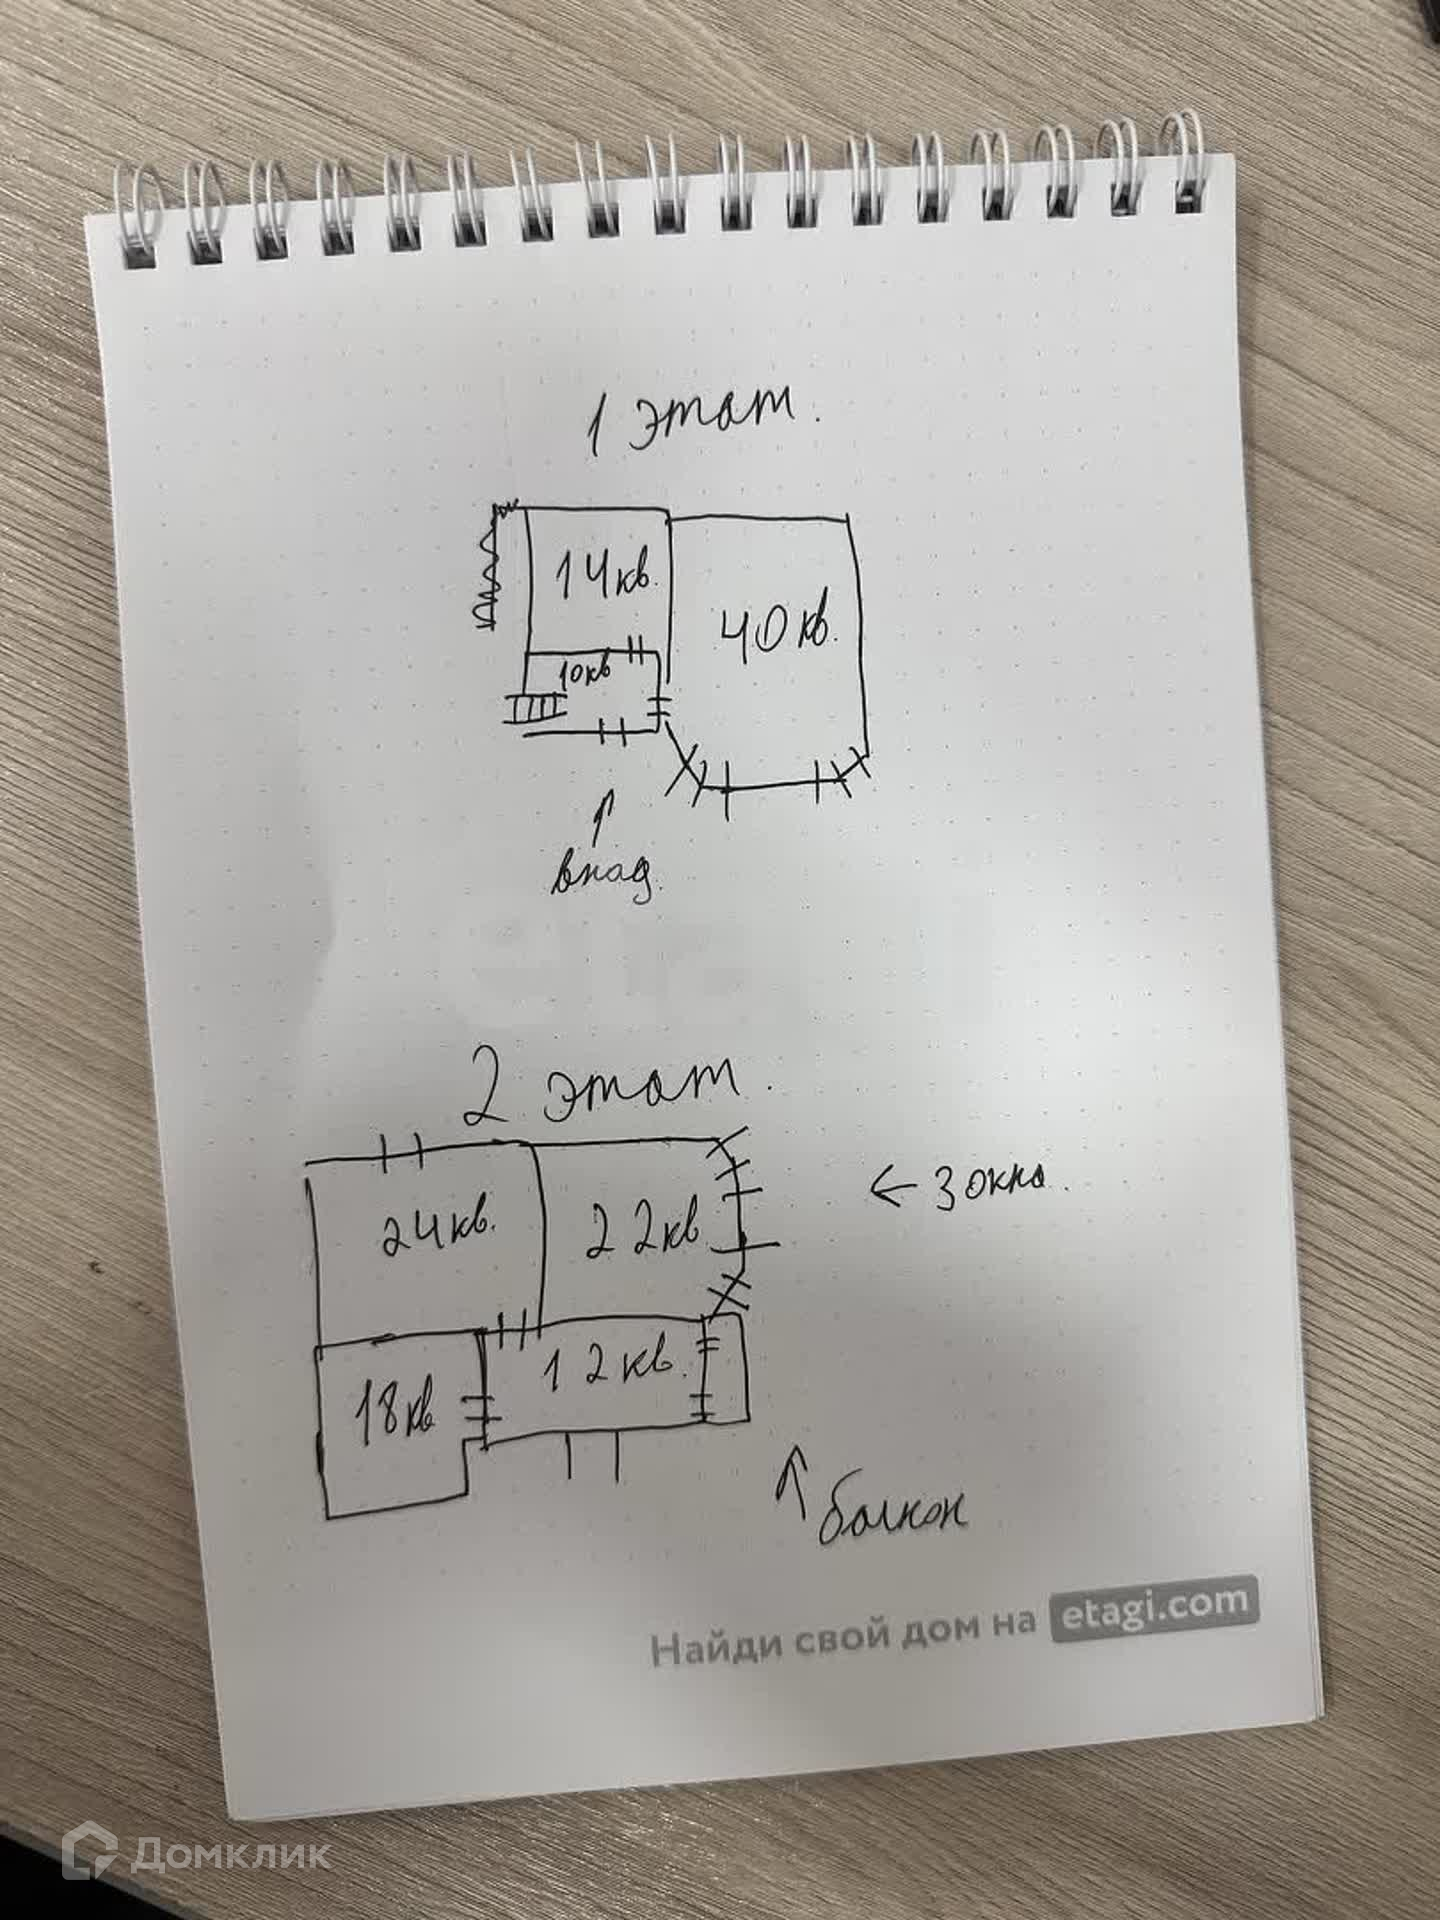 1 этаж.
14 кв.
40 кв.
10 кв
вход.
2 этаж.
24 кв.
22 кв
← 3 окна.
12 кв.
18 кв
балкон
Найди свой дом на etagi.com
Домклик